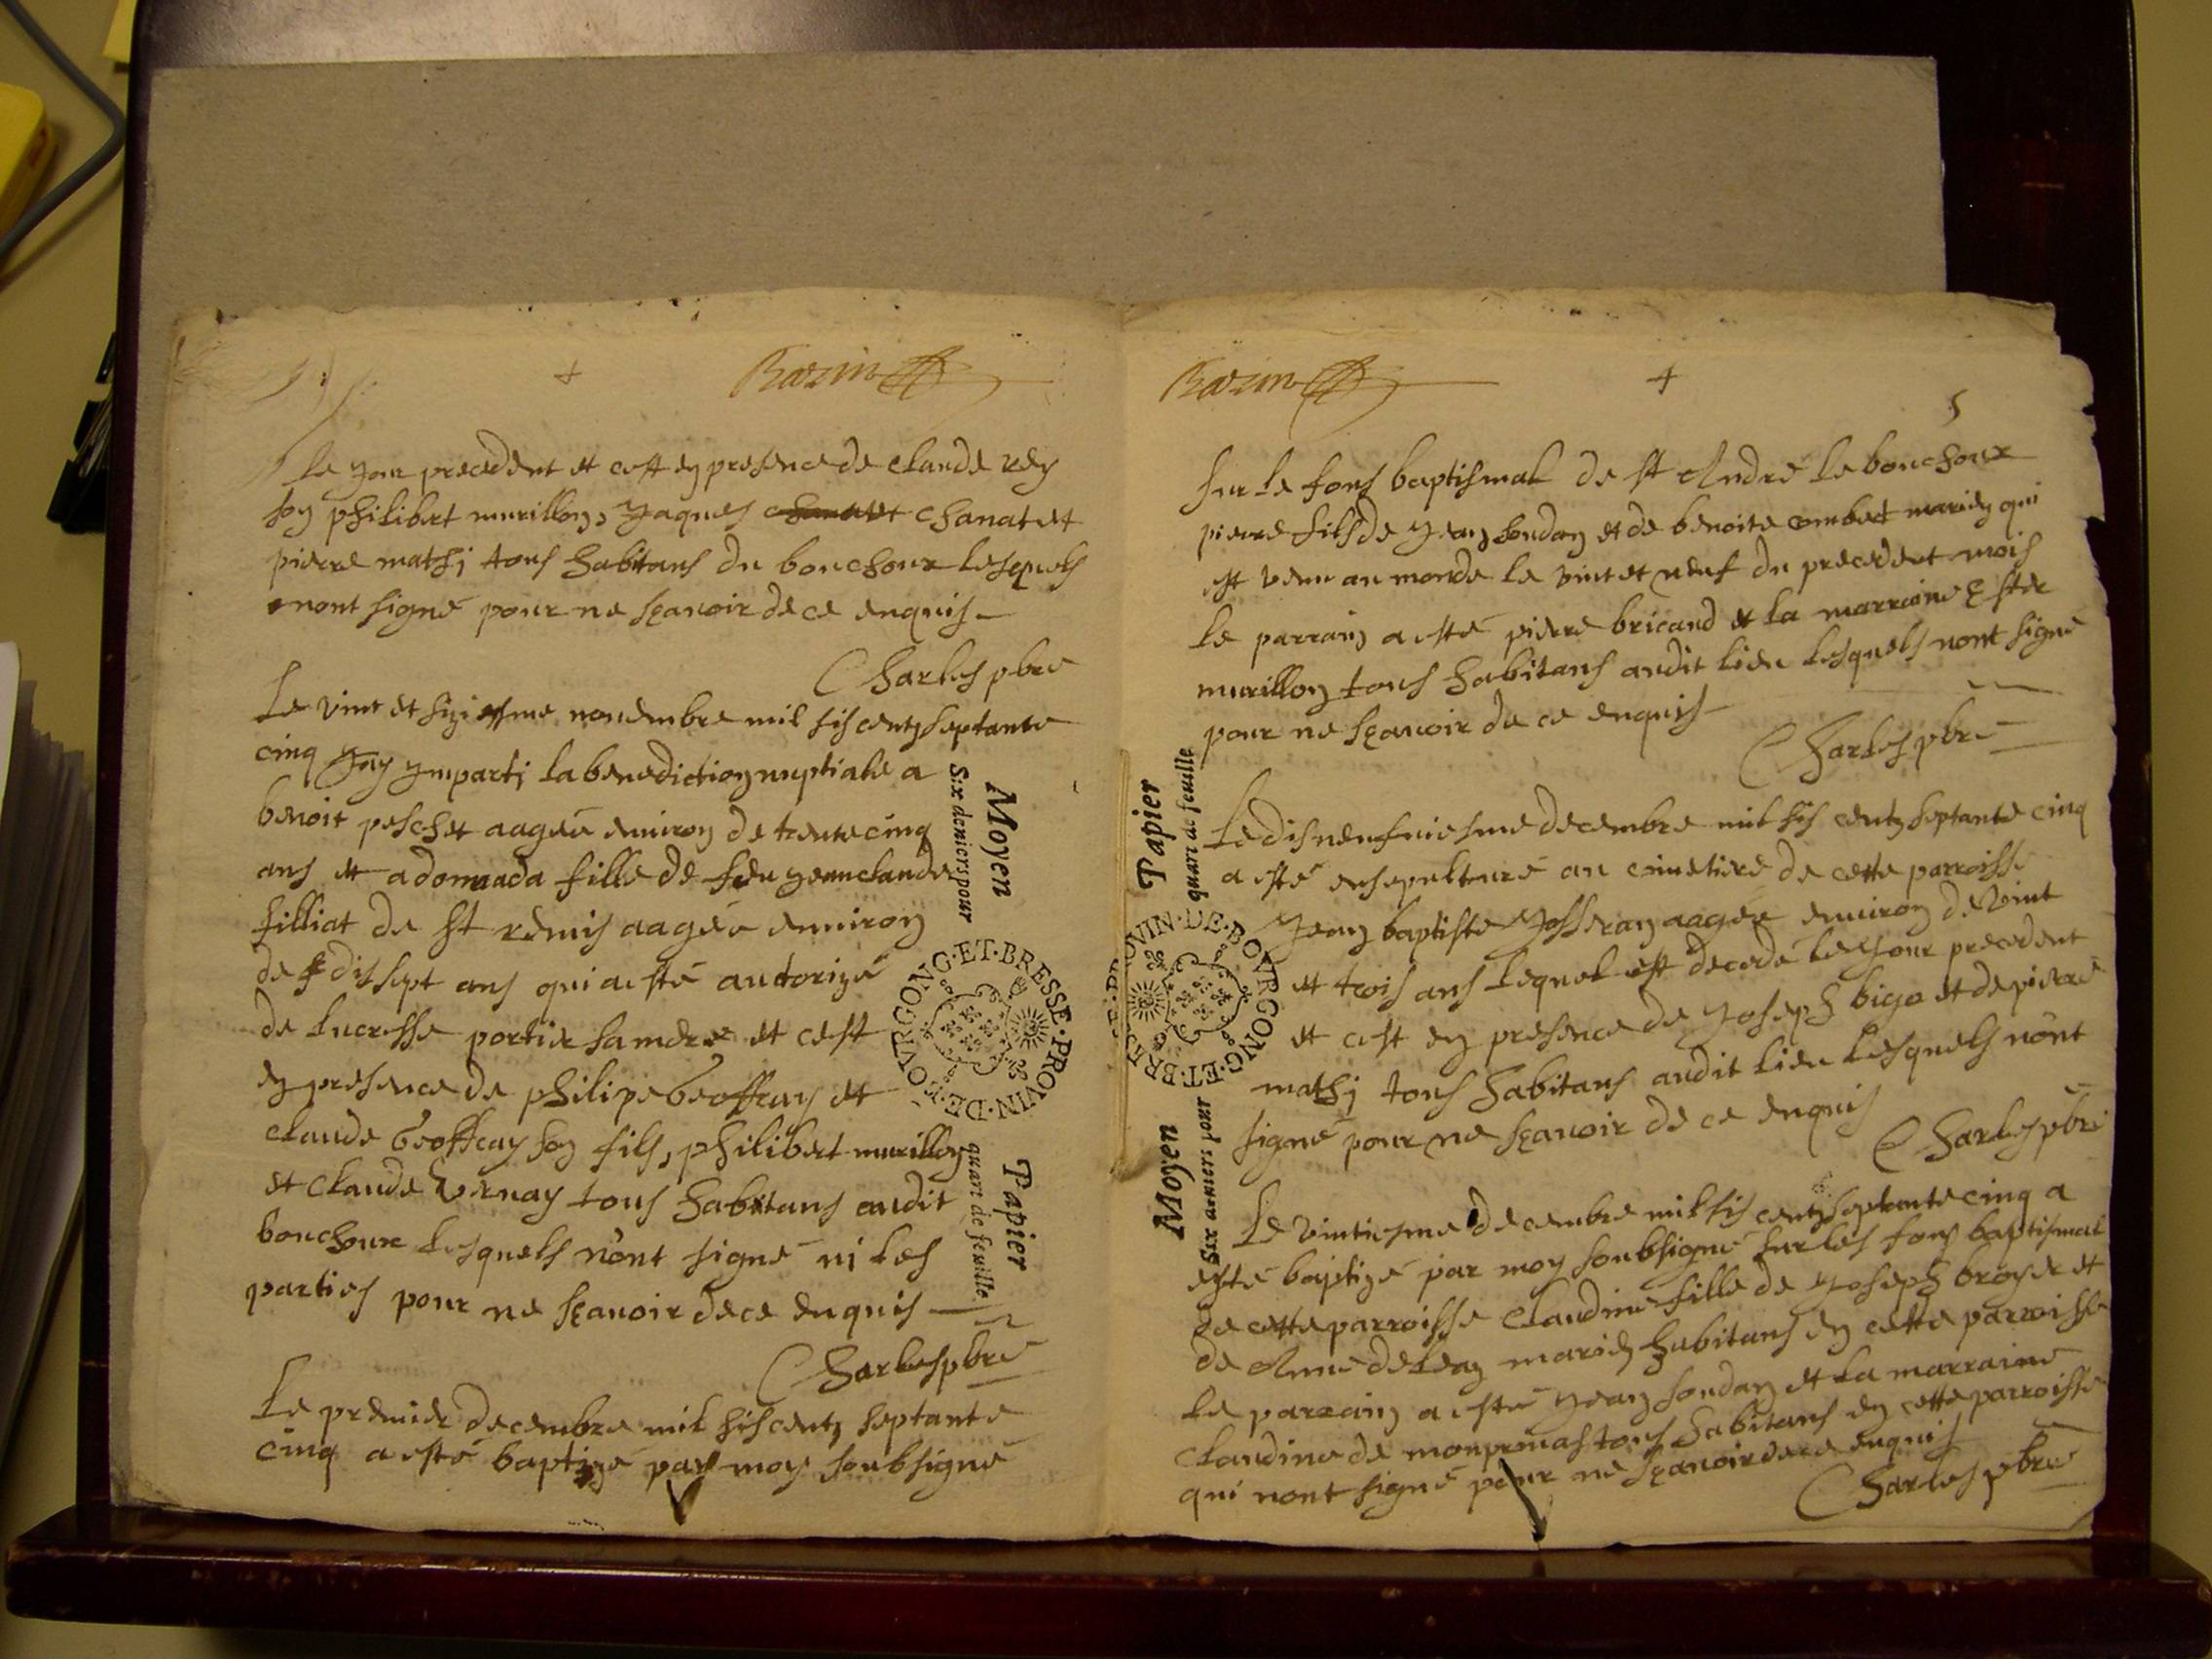 Razin
le jour precedent et cest en presence de claude rey
son philibert murillon, Jaques chanatet chanatet
pierre mathi tous habitans du bouchoux lesquels
nont signé pour ne scavoir de ce enquis
Charles pbre
Le vint et siziesme novembre mil sis centz septante
cinq Jay ymparti la benediction nuptiale a
benoit peschet aagée environ de trente cinq
ans et a domada fille de feu jean claude
filliat de st remis aagée environ
de dissept ans qui a esté autorizé
de lucresse portier sa mere et cest
en presence de philipe Geoffray et
claude Geoffray son fils, philibert murillon
et claude vernay tous habitans audit
bouchoux lesquels nont signé ni les
parties pour ne scavoir de ce enquis
Charles pbre
Le premier decembre mil sis centz septante
cinq a esté baptizé par moy soubsigné
Moyen
Six deniers pour
PROVIN·DE·BOVRGONG·ET·BRESSE
Papier
quart de feuille
Razin
5
sur le fons baptismal de st André le bouchoux
pierre fils de Jean soudan et de benoite combet mariez qui
est venu au monde le vint et neuf du precedent mois
le parrain a esté pierre bricaud et la marraine Ester
murillon tous habitans audit lieu lesquels nont signé
pour ne scavoir de ce enquis
Charles pbre
Le dis neufviesme decembre mil sis centz septante cinq
a esté ensepulturé au cimetiere de cette parroisse
Jean baptiste Josseran aagée environ de vint
et trois ans lequel est decedé le jour precedent
et cest en presence de Joseph bigo et de pierre
mathi tous habitans audit lieu lesquels nont
signé pour ne scavoir de ce enquis
Charles pbre
Le vintiesme decembre mil sis centz septante cinq a
esté baptizé par moy soubsigné sur les fons baptismal
de cette parroisse Claudine fille de Joseph broyer et
de Anne deleaz mariez habitans en cette parroisse
le parrain a esté Jean soudan et la marraine
claudine de monpernas tous habitans en cette parroisse
qui nont signé pour ne scavoir de ce enquis
Charles pbre
Papier
quart de feuille
PROVIN·DE·BOVRGONG·ET·BRESSE
Moyen
Six deniers pour